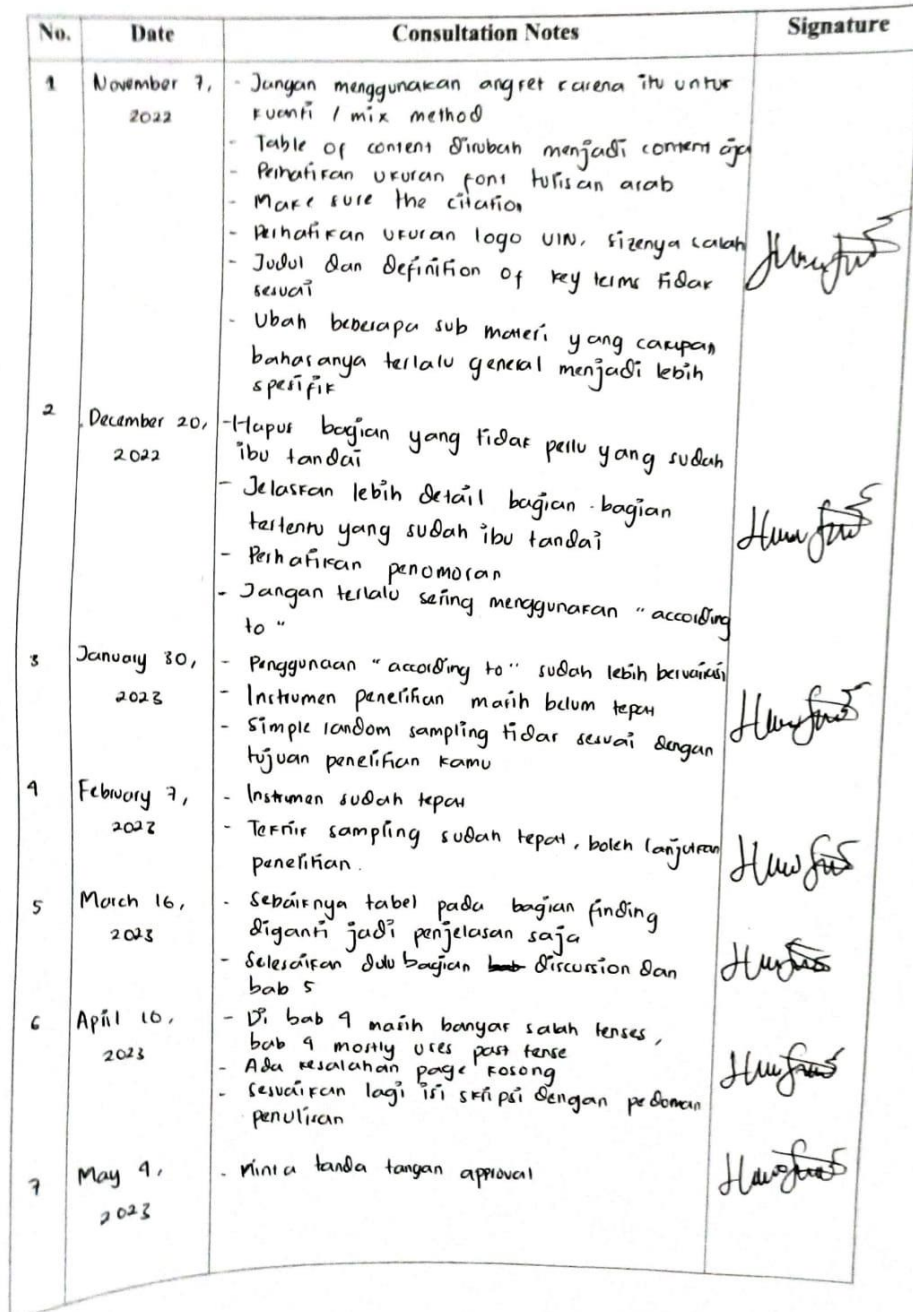 No. Date Consultation Notes Signature
1 November 7, - Jangan menggunakan angket karena itu untuk
2022 kuanti / mix method
- Table of content dirubah menjadi content aja
- Perhatikan ukuran font tulisan arab
- Make sure the citation
- Perhatikan ukuran logo UIN, sizenya salah
- Judul dan definition of key terms tidak
sesuai
- Ubah beberapa sub materi yang cakupan
bahasanya terlalu general menjadi lebih
spesifik
2 December 20, - Hapus bagian yang tidak perlu yang sudah
2022 ibu tandai
- Jelaskan lebih detail bagian-bagian
tertentu yang sudah ibu tandai
- Perhatikan penomoran
- Jangan terlalu sering menggunakan "according
to"
3 January 30, - Penggunaan "according to" sudah lebih bervariasi
2023 - Instrumen penelitian masih belum tepat
- Simple random sampling tidak sesuai dengan
tujuan penelitian kamu
4 February 7, - Instrumen sudah tepat
2023 - Teknik sampling sudah tepat, boleh lanjutkan
penelitian.
5 March 16, - Sebaiknya tabel pada bagian finding
2023 diganti jadi penjelasan saja
- Selesaikan dulu bagian discussion dan
bab 5
6 April 10, - Di bab 4 masih banyak salah tenses,
2023 bab 4 mostly uses past tense
- Ada kesalahan page kosong
- Sesuaikan lagi isi skripsi dengan pedoman
penulisan
7 May 4, - Minta tanda tangan approval
2023